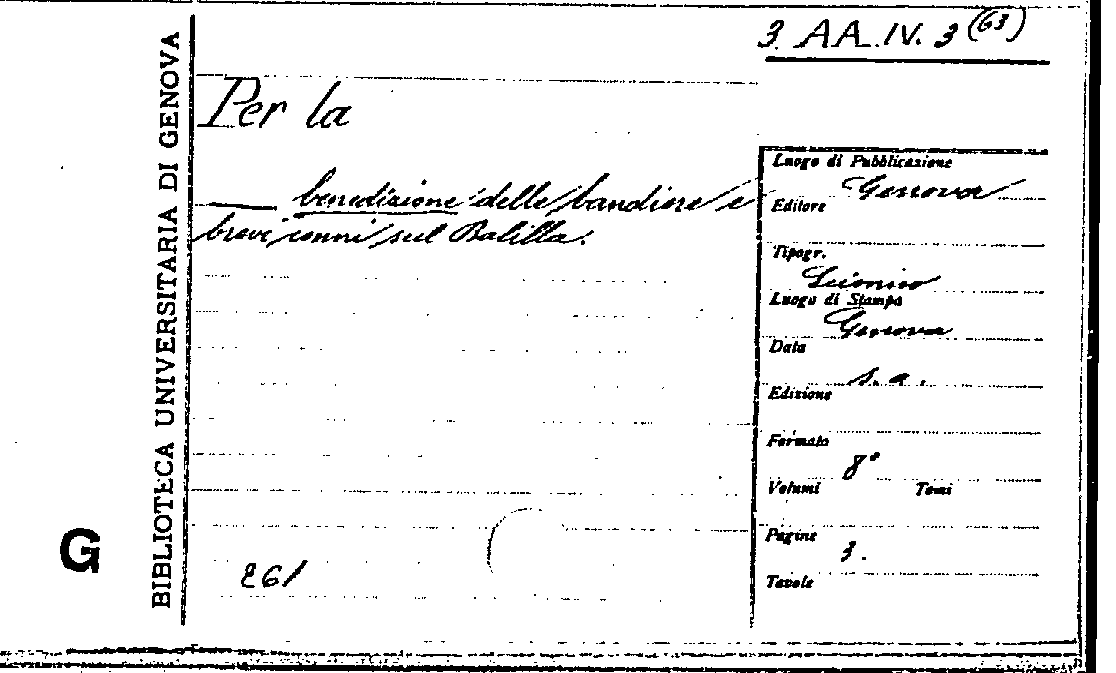 3. AA.IV. 3 (63)
BIBLIOTECA UNIVERSITARIA DI GENOVA
Per la
benedizione delle bandiere e
brevi cenni sul Balilla.
261
G
Luogo di Pubblicazione
Genova
Editore
Tipogr.
Luogo di Stampa
Genova
Data
s. a.
Edizione
Formato
8°
Volumi Tomi
Pagine
3.
Tavole